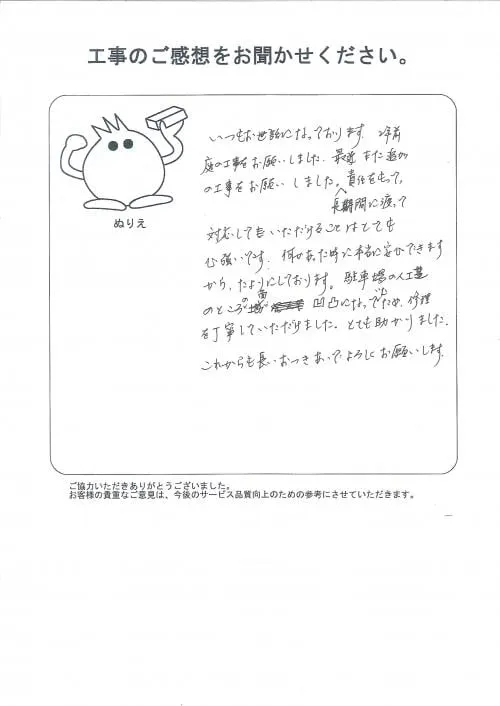 工事のご感想をお聞かせください。
ぬりえ
いつもお世話になっております。2年前
庭の工事をお願いしました。最近また追加
の工事をお願いしました。責任をもって、
長期間に渡って
対応してもいただけることはとても
心強いです。何かあった時に本当に安心できます
から、たよりにしております。駐車場の人工芝
のところの面が凹凸になってため、修理
を丁寧していただけました。とても助かりました。
これからも長いおつきあいでよろしくお願いします。
ご協力いただきありがとうございました。
お客様の貴重なご意見は、今後のサービス品質向上のための参考にさせていただきます。